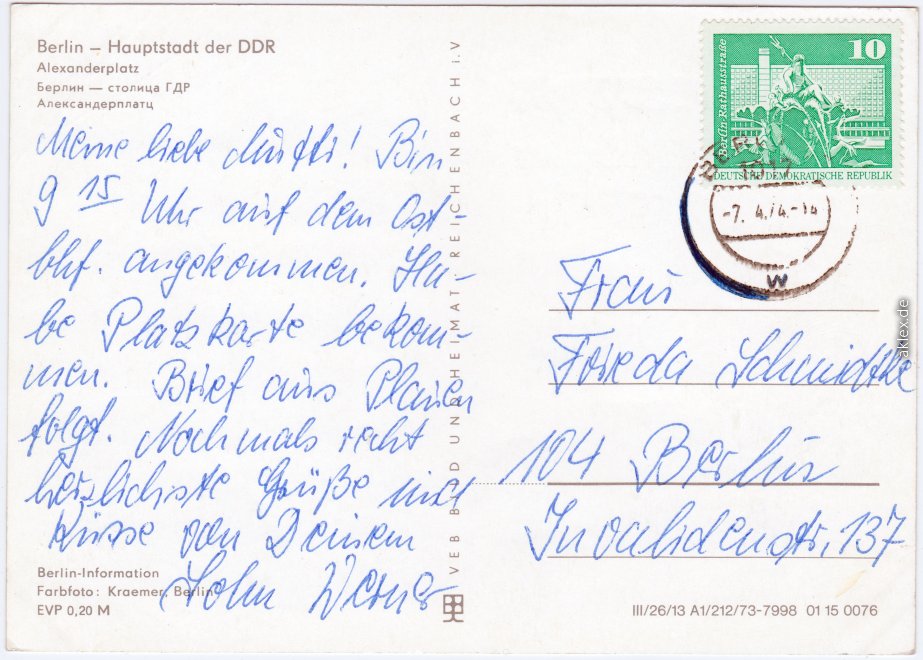 Berlin – Hauptstadt der DDR
Alexanderplatz
Берлин — столица ГДР
Александерплатц
Meine liebe Mutti! Bin
9 15 Uhr auf dem Ost-
bhf. angekommen. Ha-
be Platzkarte bekom-
men. Brief aus Plauen
folgt. Nochmals recht
herzlichste Grüße und
Küsse von Deinem
Sohn Werner
Berlin-Information
Farbfoto: Kraemer, Berlin
EVP 0,20 M
VEB BILD UND HEIMAT REICHENBACH i. V
10
Berlin Rathausstraße
DEUTSCHE DEMOKRATISCHE REPUBLIK
1017
-7. 4.74.-14
w
Frau
Frieda Schmidtke
104 Berlin
Invalidenstr. 137
III/26/13 A1/212/73-7998 01 15 0076
aklex.de